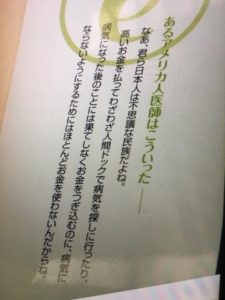 あるアメリカ人医師はこういった――
なあ、君ら日本人は不思議な民族だよね。
高いお金を払ってわざわざ人間ドックで病気を探しに行ったり、
病気になった後のことには果てしなくお金をつぎ込むのに、病気に
ならないようにするためにはほとんどお金を使わないんだからね。